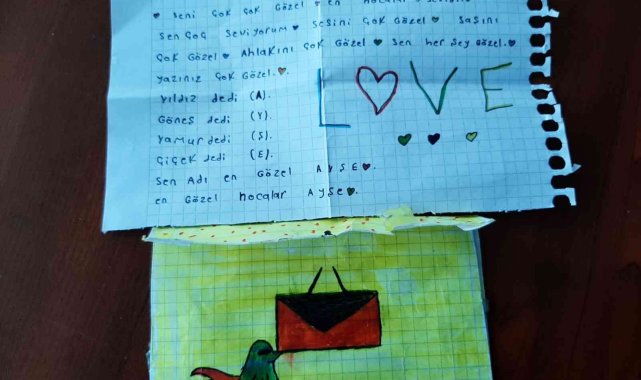 ♥ Seni Çok Çok Güzel ♥ en
Sen Çoğ Seviyorum ♥ Sesini Çok Gözel ♥ Saşını
Çok Gözel ♥ Ahlakını Çok Gözel ♥ Sen her Şey Gözel.♥
Yazınız Çok Gözel.♥.
LOVE
Yıldız dedi (A).
Göneş dedi (Y).
Yamur dedi (Ş).
Çiçek dedi (E).
Sen Adı en Gözel AYŞE♥.
en Gözel hocalar Ayşe♥.